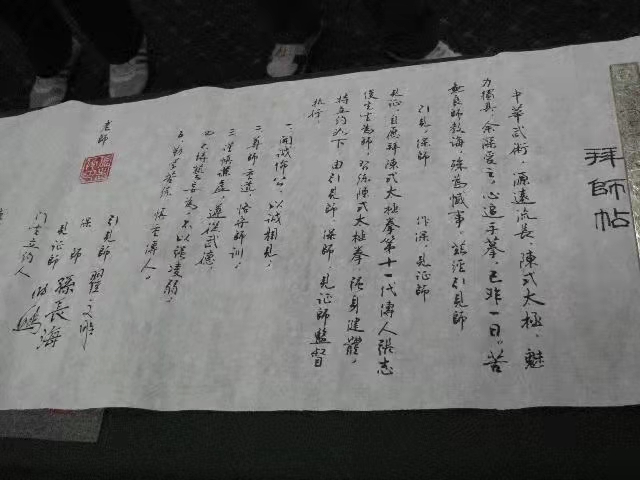 拜師帖
中華武術，源遠流長，陳式太極，魅
力獨具，余深愛之，心追手摹，已非一日。苦
無良師教誨，殊為憾事，茲經引見師
引見，保師 作保，見證師
見證，自愿拜陳式太極拳第十一代傳人張志
俊先生為師，習練陳式太極拳，強身健體，
特立約如下，由引見師，保師，見證師監督
执行。
一、開誠佈公，以誠相見，
二、尊師重道，恪守師訓，
三、謹慎謙虛，遵從武德，
四、不為，不以強凌弱，
五、勤學苦練，傳人。
老師
引見師 翟文
保師
見證師 孫長海
門生立約人